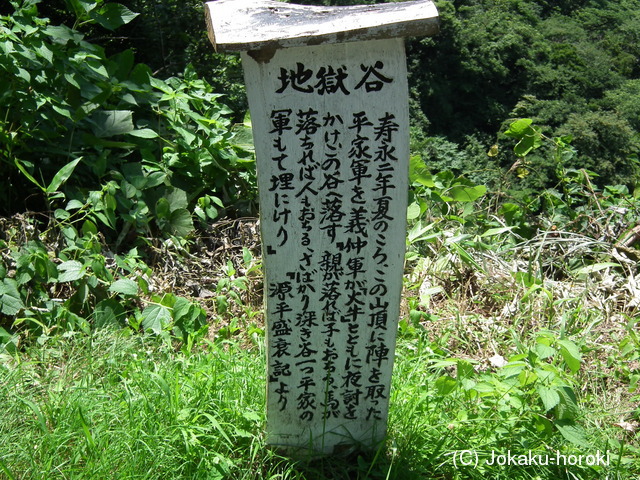 地獄谷
寿永二年夏のころ、この山頂に陣を取った
平家軍を義仲軍が火牛とともに夜討を
かけこの谷へ落す。親が落れば子もおちる、主が
落ちれば人もおちる、さばかり深き谷一つ平家の
軍もて埋にけり』
『源平盛衰記』より
(C) Jokaku-horoki